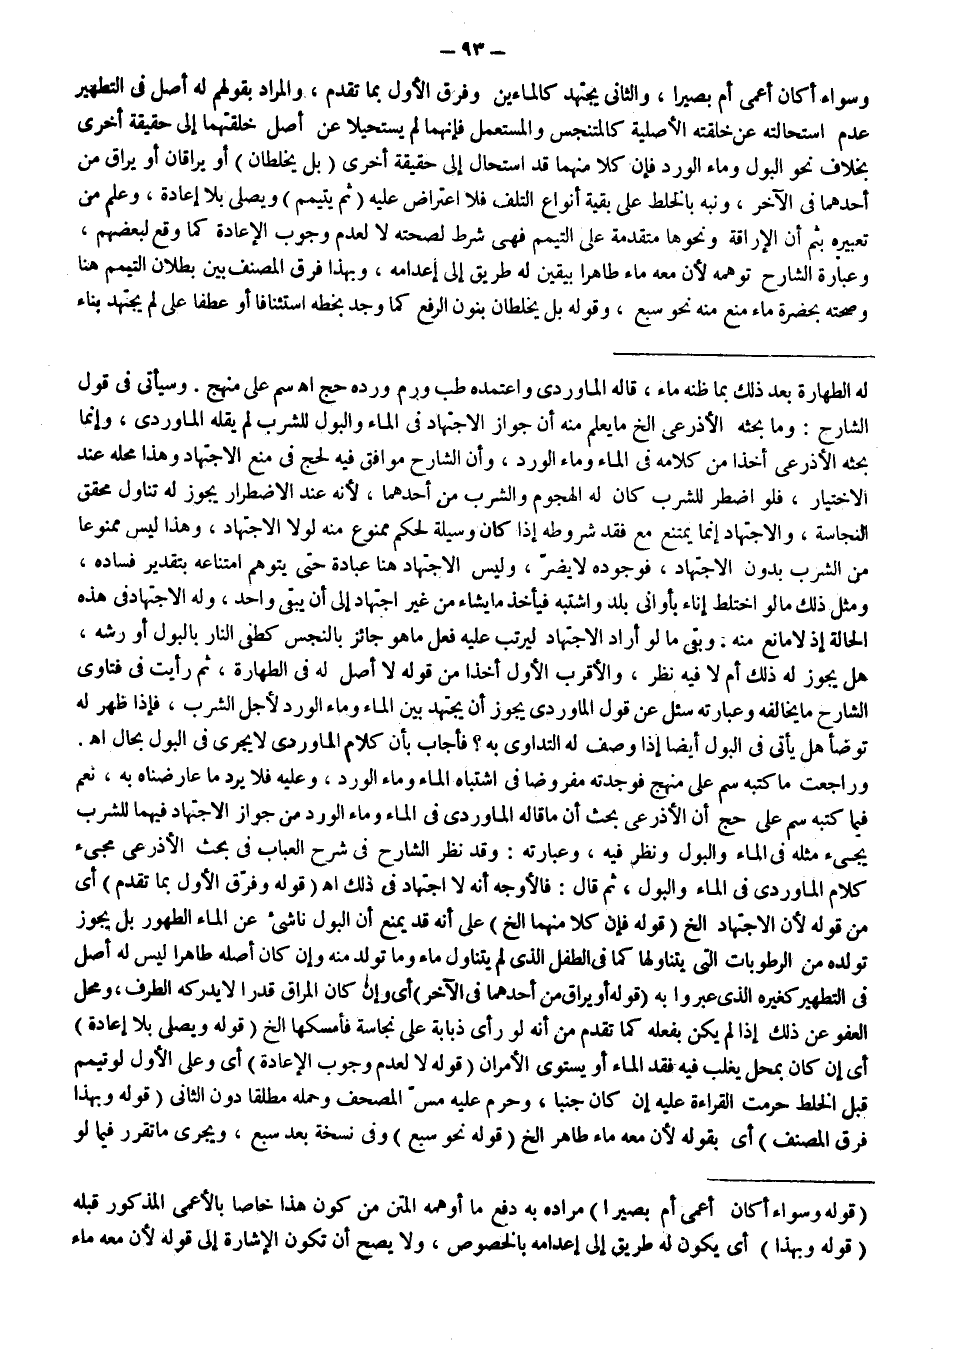 ـ ٩٣ ـ
وسواء أكان أعمى أم بصيرا ، والثانى يجتهد كالماءين وفرق الأول بما تقدم ، والمراد بقولهم له أصل فى التطهير
عدم استحالته عن خلقته الأصلية كالمتنجس والمستعمل فإنهما لم يستحيلا عن أصل خلقتهما إلى حقيقة أخرى
بخلاف نحو البول وماء الورد فإن كلا منهما قد استحال إلى حقيقة أخرى ( بل يخلطان ) أو يراقان أو يراق من
أحدهما فى الآخر ، ونبه بالخلط على بقية أنواع التلف فلا اعتراض عليه ( ثم يتيمم ) ويصلى بلا إعادة ، وعلم من
تعبيره بثم أن الإراقة ونحوها متقدمة على التيمم فهى شرط لصحته لا لعدم وجوب الإعادة كما وقع لبعضهم ،
وعبارة الشارح توهمه لأن معه ماء طاهرا بيقين له طريق إلى إعدامه ، وبهذا فرق المصنف بين بطلان التيمم هنا
وصحته بحضرة ماء منع منه نحو سبع ، وقوله بل يخلطان بنون الرفع كما وجد بخطه استئنافا أو عطفا على لم يجتهد بناء
له الطهارة بعد ذلك بما ظنه ماء ، قاله الماوردى واعتمده طب ورم ورده حج اه سم على منهج . وسيأتى فى قول
الشارح : وما بحثه الأذرعى الخ مايعلم منه أن جواز الاجتهاد فى الماء والبول للشرب لم يقله الماوردى ، وإنما
بحثه الأذرعى أخذا من كلامه فى الماء وماء الورد ، وأن الشارح موافق فيه لحج فى منع الاجتهاد وهذا محله عند
الاختيار ، فلو اضطر للشرب كان له الهجوم والشرب من أحدهما ، لأنه عند الاضطرار يجوز له تناول محقق
النجاسة ، والاجتهاد إنما يمتنع مع فقد شروطه إذا كان وسيلة لحكم ممنوع منه لولا الاجتهاد ، وهذا ليس ممنوعا
من الشرب بدون الاجتهاد ، فوجوده لايضرّ ، وليس الاجتهاد هنا عبادة حتى يتوهم امتناعه بتقدير فساده ،
ومثل ذلك مالو اختلط إناء بأوانى بلد واشتبه فيأخذ مايشاء من غير اجتهاد إلى أن يبقى واحد ، وله الاجتهاد فى هذه
الحالة إذ لامانع منه . وبقى ما لو أراد الاجتهاد ليرتب عليه فعل ماهو جائز بالنجس كطفى النار بالبول أو رشه ،
هل يجوز له ذلك أم لا فيه نظر ، والأقرب الأول أخذا من قوله لا أصل له فى الطهارة ، ثم رأيت فى فتاوى
الشارح مايخالفه وعبارته سئل عن قول الماوردى يجوز أن يجتهد بين الماء وماء الورد لأجل الشرب ، فإذا ظهر له
توضأ هل يأتى فى البول أيضا إذا وصف له التداوى به ؟ فأجاب بأن كلام الماوردى لايجرى فى البول بحال اه .
وراجعت ماكتبه سم على منهج فوجدته مفروضا فى اشتباه الماء وماء الورد ، وعليه فلا يرد ما عارضناه به ، نعم
فيما كتبه سم على حج أن الأذرعى بحث أن ماقاله الماوردى فى الماء وماء الورد من جواز الاجتهاد فيهما للشرب
يجىء مثله فى الماء والبول ونظر فيه ، وعبارته : وقد نظر الشارح فى شرح العباب فى بحث الأذرعى مجىء
كلام الماوردى فى الماء والبول ، ثم قال : فالأوجه أنه لا اجتهاد فى ذلك اه ( قوله وفرّق الأول بما تقدم ) أى
من قوله لأن الاجتهاد الخ ( قوله فإن كلا منهما الخ ) على أنه قد يمنع أن البول ناشئ عن الماء الطهور بل يجوز
تولده من الرطوبات التى يتناولها كما فى الطفل الذى لم يتناول ماء وما تولد منه وإن كان أصله طاهرا ليس له أصل
فى التطهير كغيره الذى عبروا به ( قوله أو يراق من أحدهما فى الآخر ) أى وإن كان المراق قدرا لايدركه الطرف ، ومحل
العفو عن ذلك إذا لم يكن بفعله كما تقدم من أنه لو رأى ذبابة على نجاسة فأمسكها الخ ( قوله ويصلى بلا إعادة )
أى إن كان بمحل يغلب فيه فقد الماء أو يستوى الأمران ( قوله لا لعدم وجوب الإعادة ) أى وعلى الأول لو تيمم
قبل الخلط حرمت القراءة عليه إن كان جنبا ، وحرم عليه مسّ المصحف وحمله مطلقا دون الثانى ( قوله وبهذا
فرق المصنف ) أى بقوله لأن معه ماء طاهر الخ ( قوله نحو سبع ) وفى نسخة بعد سبع ، ويجرى ماتقرر فيما لو
( قوله وسواء أكان أعمى أم بصيرا ) مراده به دفع ما أوهمه المتن من كون هذا خاصا بالأعمى المذكور قبله
( قوله وبهذا ) أى يكون له طريق إلى إعدامه بالخصوص ، ولا يصح أن تكون الإشارة إلى قوله لأن معه ماء